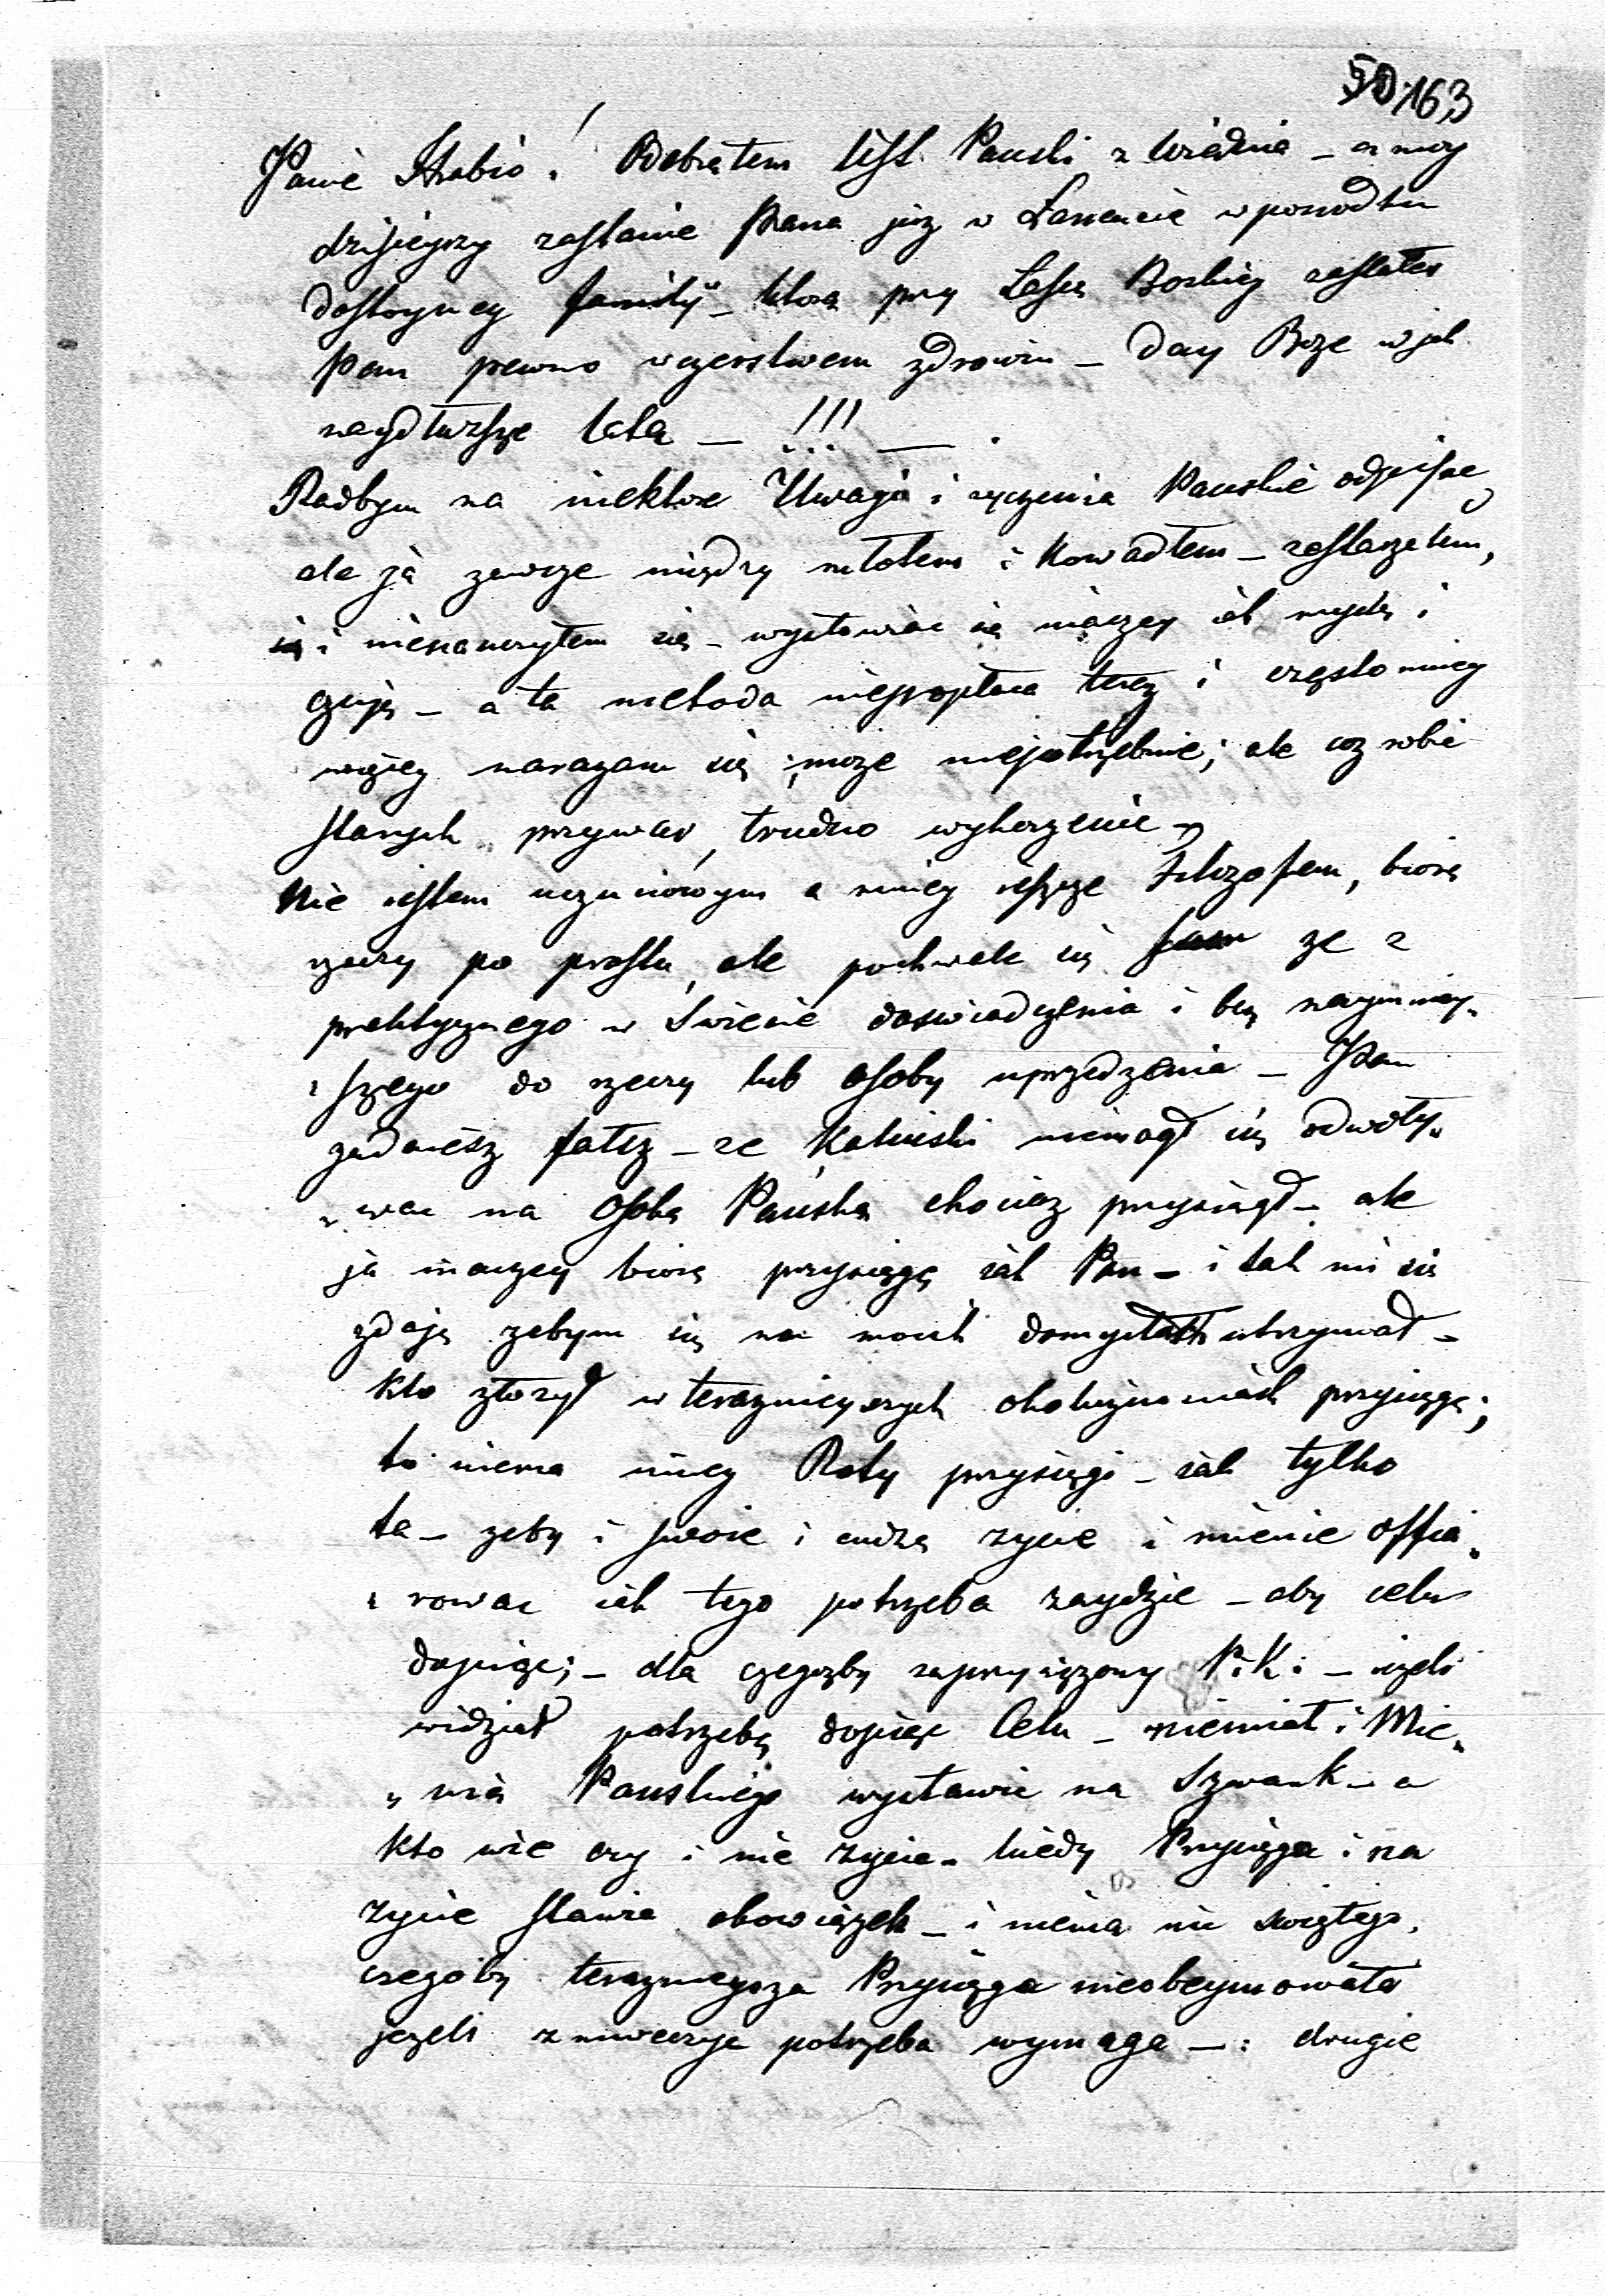 50.163
Panie Hrabio! Odebrałem list Pański z Wiednia – a moy
dzisieyszy zastanie Pana już w Łancucie w posrodku
dostoyney familÿ – ktorą przy Łasce Boskiey zastałes
Pan pewno w czerstwem zdrowiu – Day Boze w jak
naydłuzsze lata – !!! – .
Radbym na niektore Uwagi i zyczenia Panskie odpisac
ale ja zawsze między młotem i Kowadłem – zestarzałem,
się i nienauczyłem się – wystawiac się inaczey iak myslę i
czuję – a ta metoda niepopłaca teraz i często mniey
więcey narazam się może niepotrzebnie; ale coz robic
starych przywar, trudno wykorzenic –
Nie iestem uczuciowym a mniey ieszcze Filozofem, biorę
rzeczy po prostu, ale pochwalę się ze z
praktycznego w Swiecie doswiadczenia i bez naymniey„
„szego do rzeczy lub osoby uprzedzenia – Pan
zadaiesz fałsz – ze Kaliński niemogł się odwoły„
„wac na Osobę Pańską chociaz przysiągł – ale
ja inaczey biorę przysięgę iak Pan – i tak mi się
zdaję zebym się na moich domysłach utrzymywał –
Kto złozył w terazniejszych okolicznosciach przysięgę;
to niema inney Roty przysięgi – iak tylko
ta – zeby i swoie i cudze zycie i mienie offia„
„rowac iak tego potrzeba zaydzie – aby celu
dopiąc; – dla czegozby zaprzysięzony P. K. – iezeli
widział potrzebę dopiąc Celu – niemiał i Mie„
„nia Panskiego wystawic na Szwank – a
kto wie czy i nie zycie – kiedy Przysięga i na
zycie stawia obowiązek – i niema nic swiętego,
czegoby terazniejsza Przysięga nieobeymowała
jezeli potrzeba wymaga – : drugie